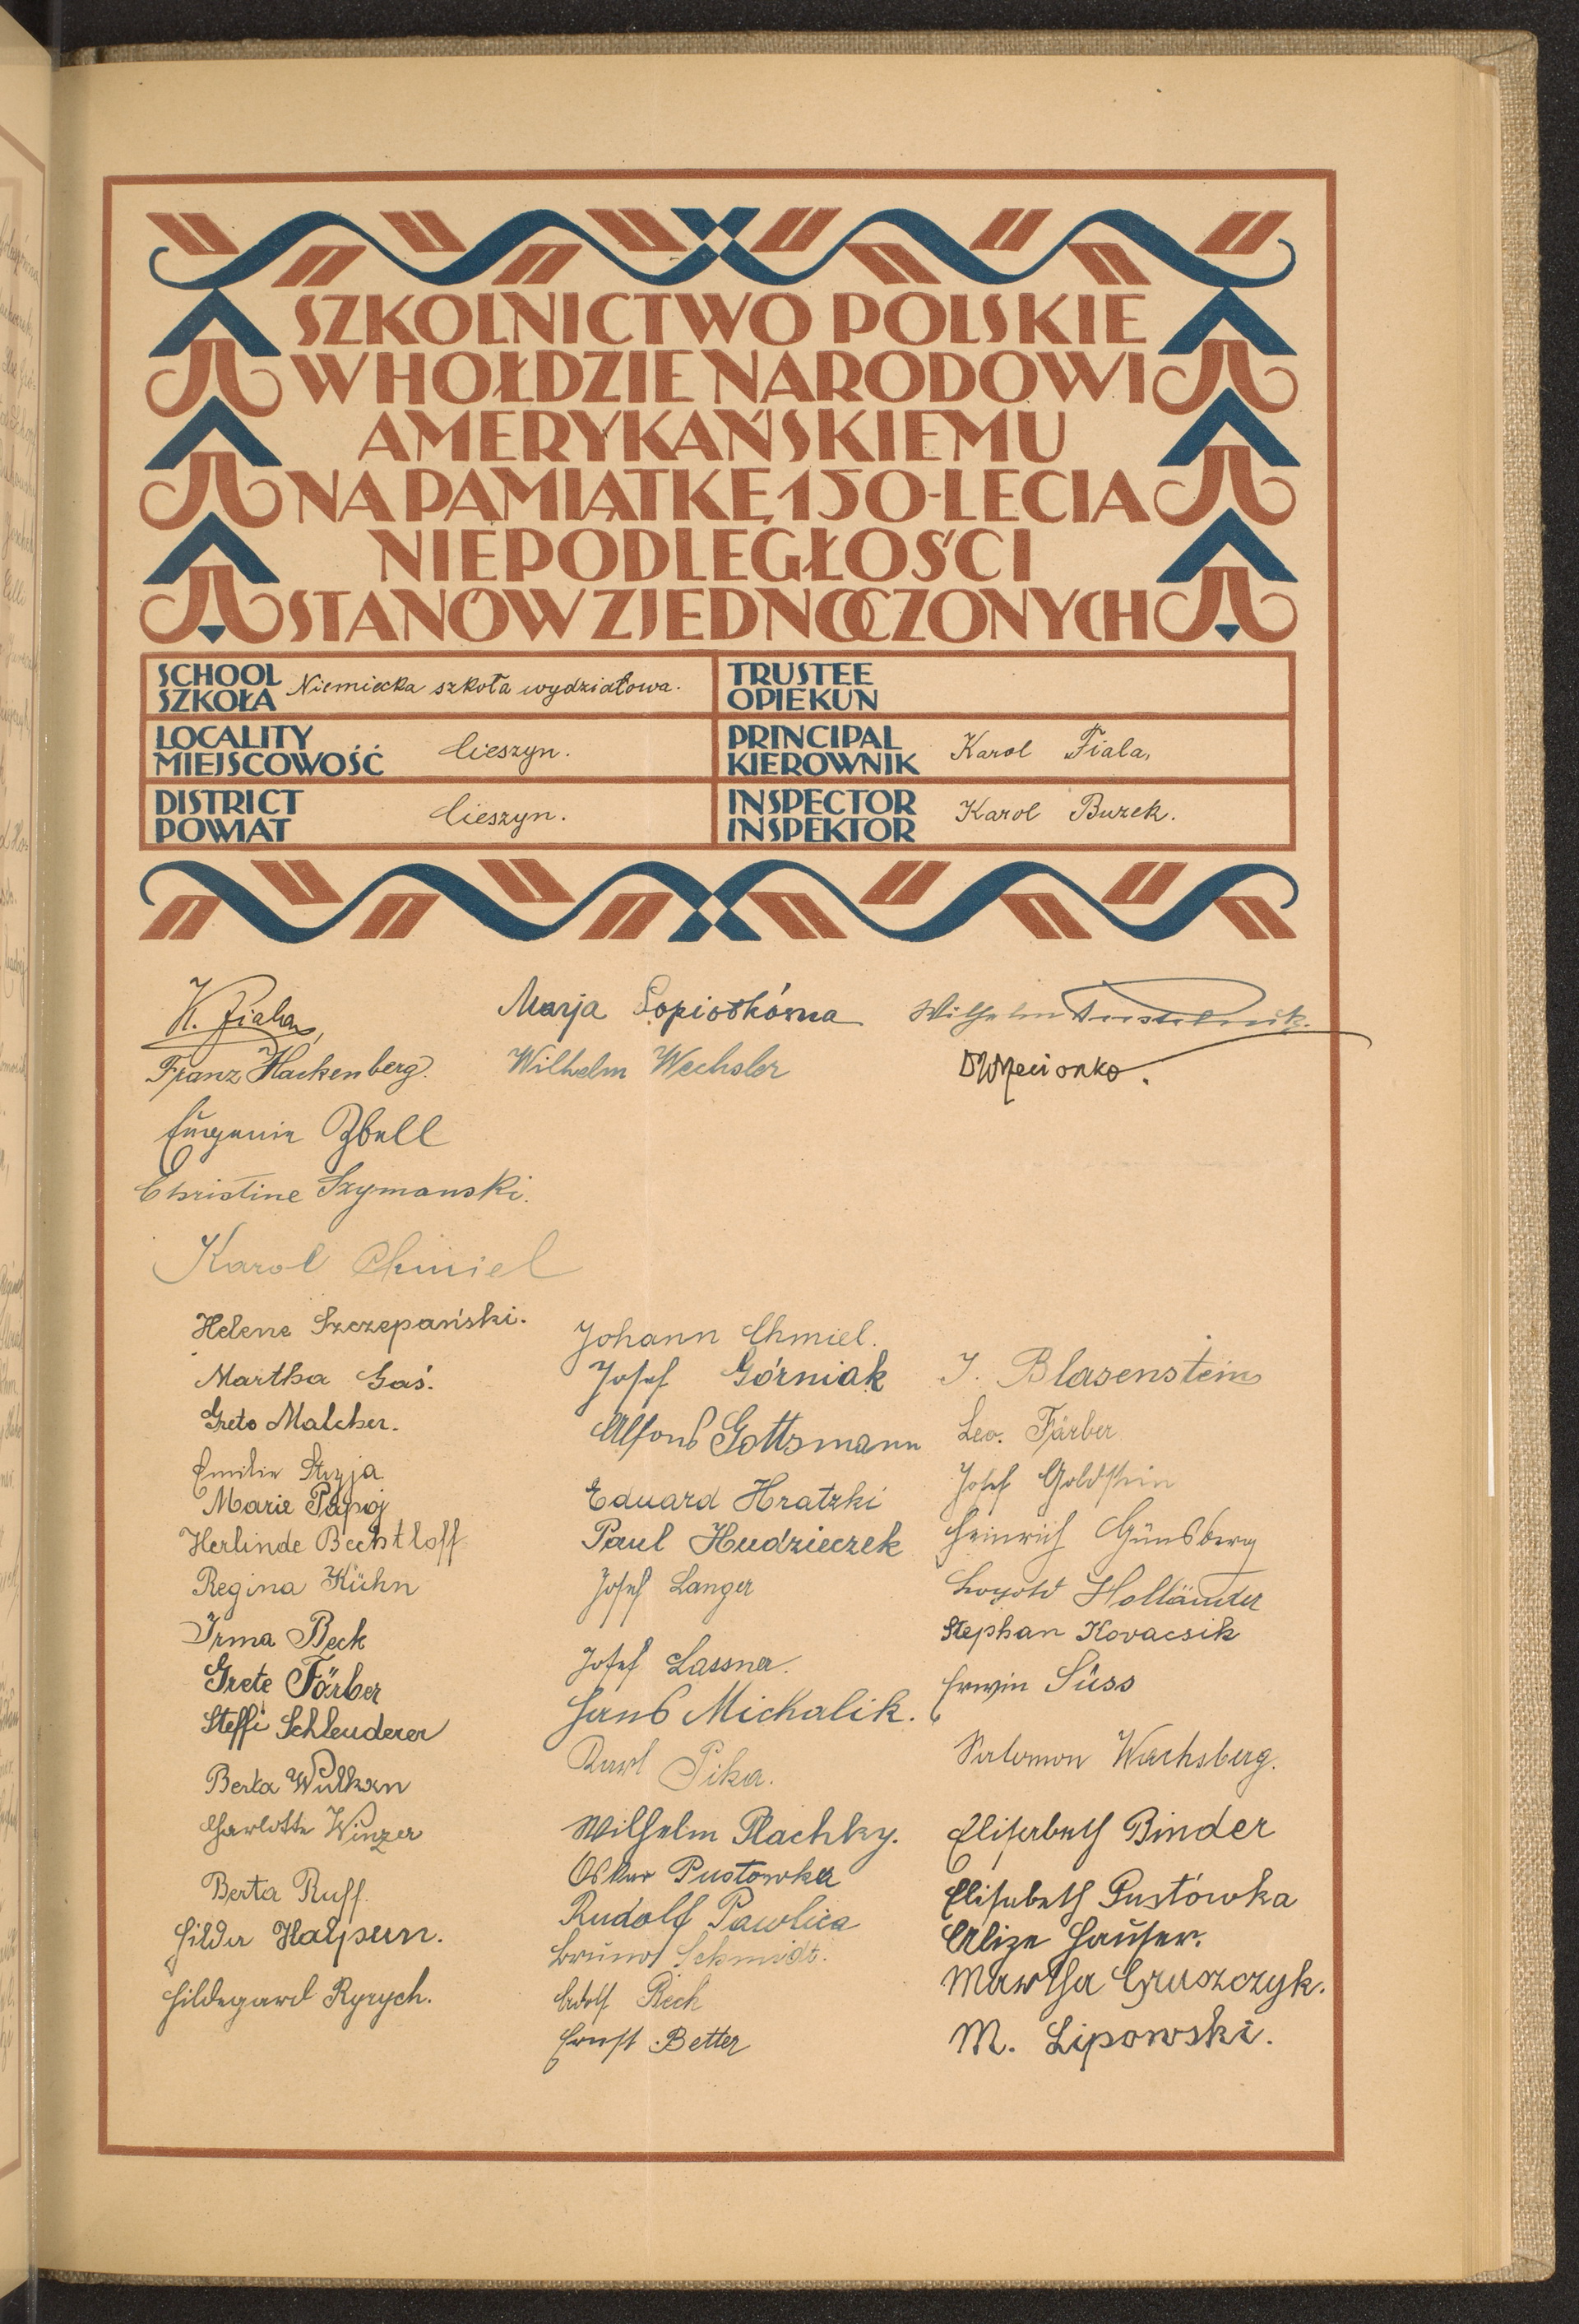 SZKOLNICTWO POLSKIE
W HOŁDZIE NARODOWI
AMERYKAŃSKIEMU
NA PAMIĄTKĘ 150-LECIA
NIEPODLEGŁOŚCI
STANÓW ZJEDNOCZONYCH
SCHOOL
SZKOŁA Niemiecka szkoła wydziałowa.
TRUSTEE
OPIEKUN
LOCALITY
MIEJSCOWOŚĆ Cieszyn.
PRINCIPAL
KIEROWNIK Karol Fiala,
DISTRICT
POWIAT Cieszyn.
INSPECTOR
INSPEKTOR Karol Buzek.
K. Fiala,
Franz Hackenberg.
Eugenie Zbell
Christine Szymanski.
Karol Chmiel
Marja
Wilhelm Wechsler
Wilhelm
Helene Szczepański.
Martha Gaś.
Grete Malcher.
Emilie Stryja
Marie Papoj
Herlinde Bechtloff
Regina Kühn
Irma Beck
Grete Färber
Steffi Schleuderer
Berta Wulkan
Charlotte Winzer
Berta Ruff.
Hilda Halpern.
Hildegard Ryrych.
Johann Chmiel.
Josef Górniak
Alfons Gottsmann
Eduard Hratzki
Paul Hudzieczek
Josef Langer
Josef Lassner.
Hans Michalik.
Karl Pika.
Wilhelm Plachky.
Oskar Pustowka
Rudolf Pawlica
Bruno Schmidt.
Adolf Beck
Ernst Better
J. Blasenstein
Leo. Färber
Josef Goldstein
Heinrich Günsberg
Leopold Holländer
Stephan Kovacsik
Erwin Süss
Salomon Wachsberg.
Elisabeth Binder
Elisabeth Pustówka
Alize Hauser.
Martha Gruszczyk.
M. Lipowski.